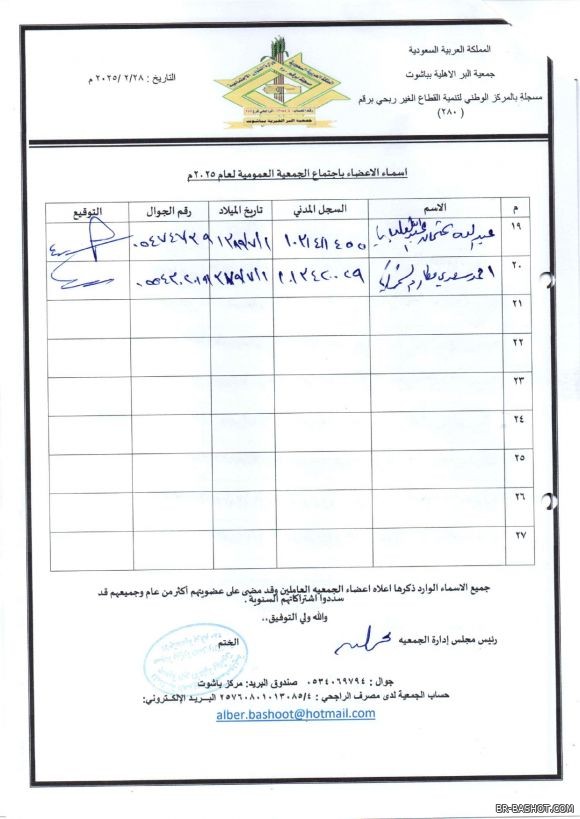 المملكة العربية السعودية
جمعية البر الاهلية بباشوت
مسجلة بالمركز الوطني لتنمية القطاع الغير ربحي برقم
( ٢٨٠ )
التاريخ : ٢٠٢٥/ ٢/٢٨ م
جمعية البر الخيرية بباشوت
اسماء الاعضاء باجتماع الجمعية العمومية لعام ٢٠٢٥م
م الاسم السجل المدني تاريخ الميلاد رقم الجوال التوقيع
١٩ عبدالله عثمان
٢٠ احمد سعدي ١٠١٣٤٢٠٠٢٩
٢١
٢٢
٢٣
٢٤
٢٥
٢٦
٢٧
جميع الاسماء الوارد ذكرها اعلاه اعضاء الجمعيه العاملين وقد مضى على عضويتهم أكثر من عام وجميعهم قد
سددوا اشتراكاتهم السنوية .
والله ولي التوفيق،،
رئيس مجلس إدارة الجمعيه الختم
جوال : ٠٥٣٤٠٦٩٧٩٤ صندوق البريد: مركز باشوت
حساب الجمعية لدى مصرف الراجحي : ٢٥٧٦٠٨٠١٠١٣٠٨٥/٤ البريد الإلكتروني:
alber.bashoot@hotmail.com
BR-BASHOT.COM